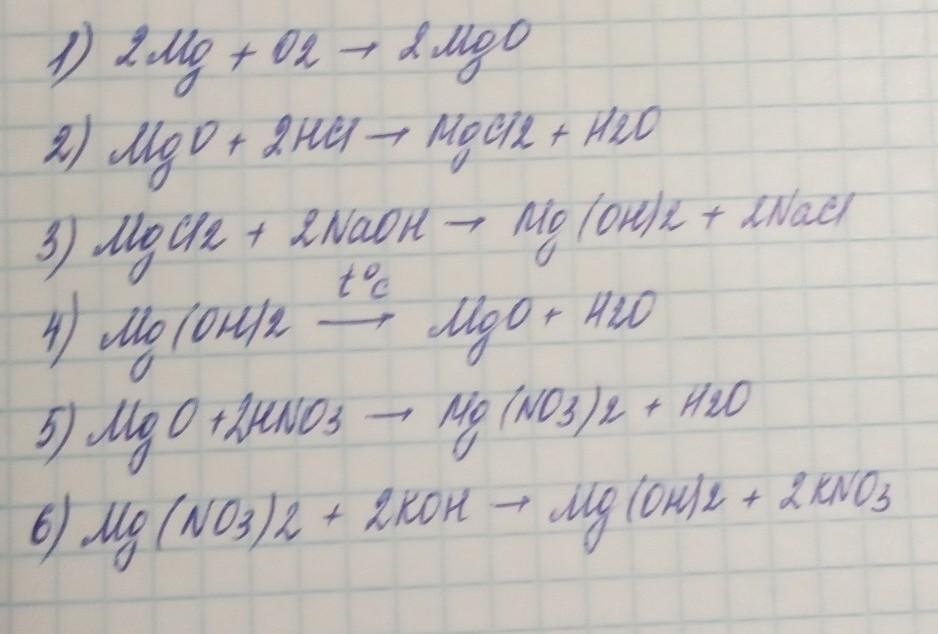 1) 2Mg + O2 → 2MgO
2) MgO + 2HCl → MgCl2 + H2O
3) MgCl2 + 2NaOH → Mg(OH)2 + 2NaCl
t°c
4) Mg(OH)2 → MgO + H2O
5) MgO + 2HNO3 → Mg(NO3)2 + H2O
6) Mg(NO3)2 + 2KOH → Mg(OH)2 + 2KNO3